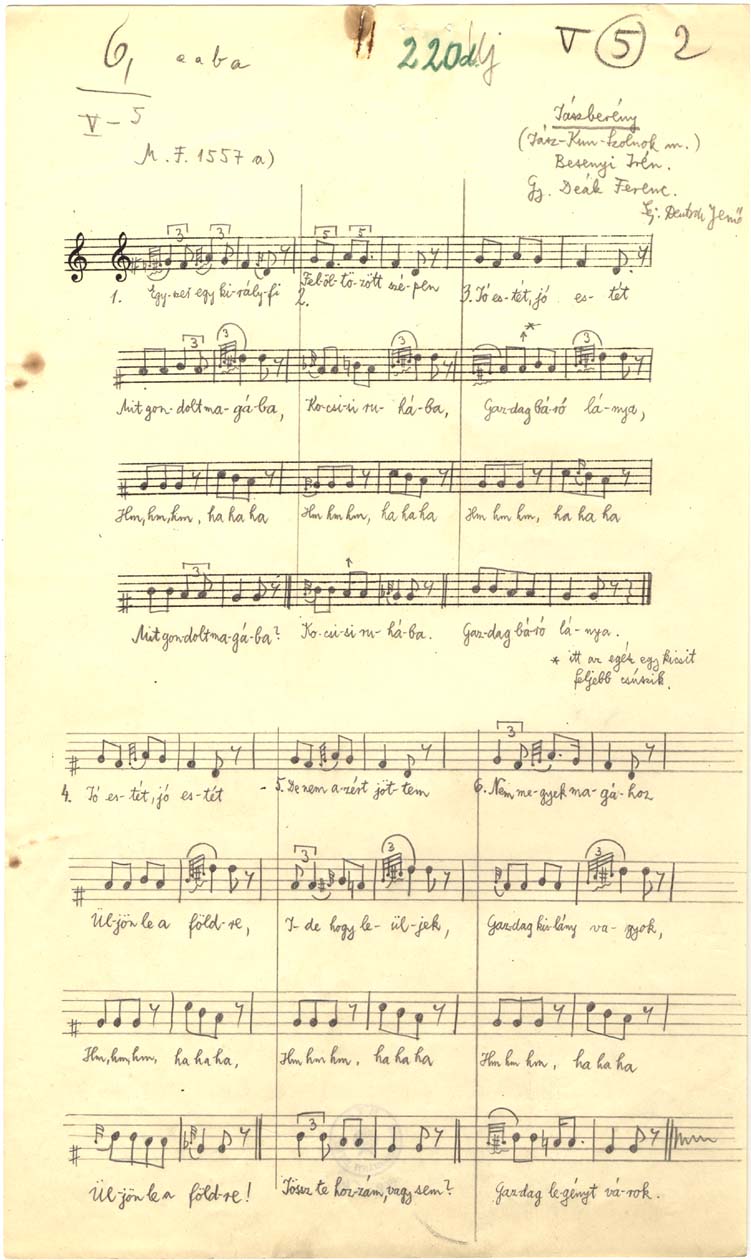 6, a a b a 220d V 5 2
V - 5
M. F. 1557 a)
Jászberény
(Jász-Kun-Szolnok m.)
Besenyi Irén.
Gy. Deák Ferenc.
Lj. Deutsch Jenő
3 3 5 5
1. Egy-szer egy ki-rály-fi 2. Fel-öl-tö-zött szé-pen 3. Jó es-tét, jó es-tét
3 3 3 * 3
Mit gon-dolt ma-gá-ba, Ko-csi-si ru-há-ba, Gaz-dag bá-ró lá-nya,
Hm, hm, hm, ha ha ha Hm hm hm, ha ha ha Hm hm hm, ha ha ha
3
Mit gon-dolt ma-gá-ba? Ko-csi-si ru-há-ba. Gaz-dag bá-ró lá-nya.
* itt az egész egy kicsit
feljebb csúszik.
3
4. Jó es-tét, jó es-tét 5. De nem a-zért jöt-tem 6. Nem me-gyek ma-gá-hoz
3 3 3
Ül-jön le a föld-re, I-de hogy le-ül-jek, Gaz-dag kis-lány va-gyok,
Hm, hm, hm, ha ha ha, Hm hm hm, ha ha ha Hm hm hm, ha ha ha
3
Ül-jön le a föld-re! Jössz te hoz-zám, vagy sem? Gaz-dag le-gényt vá-rok.